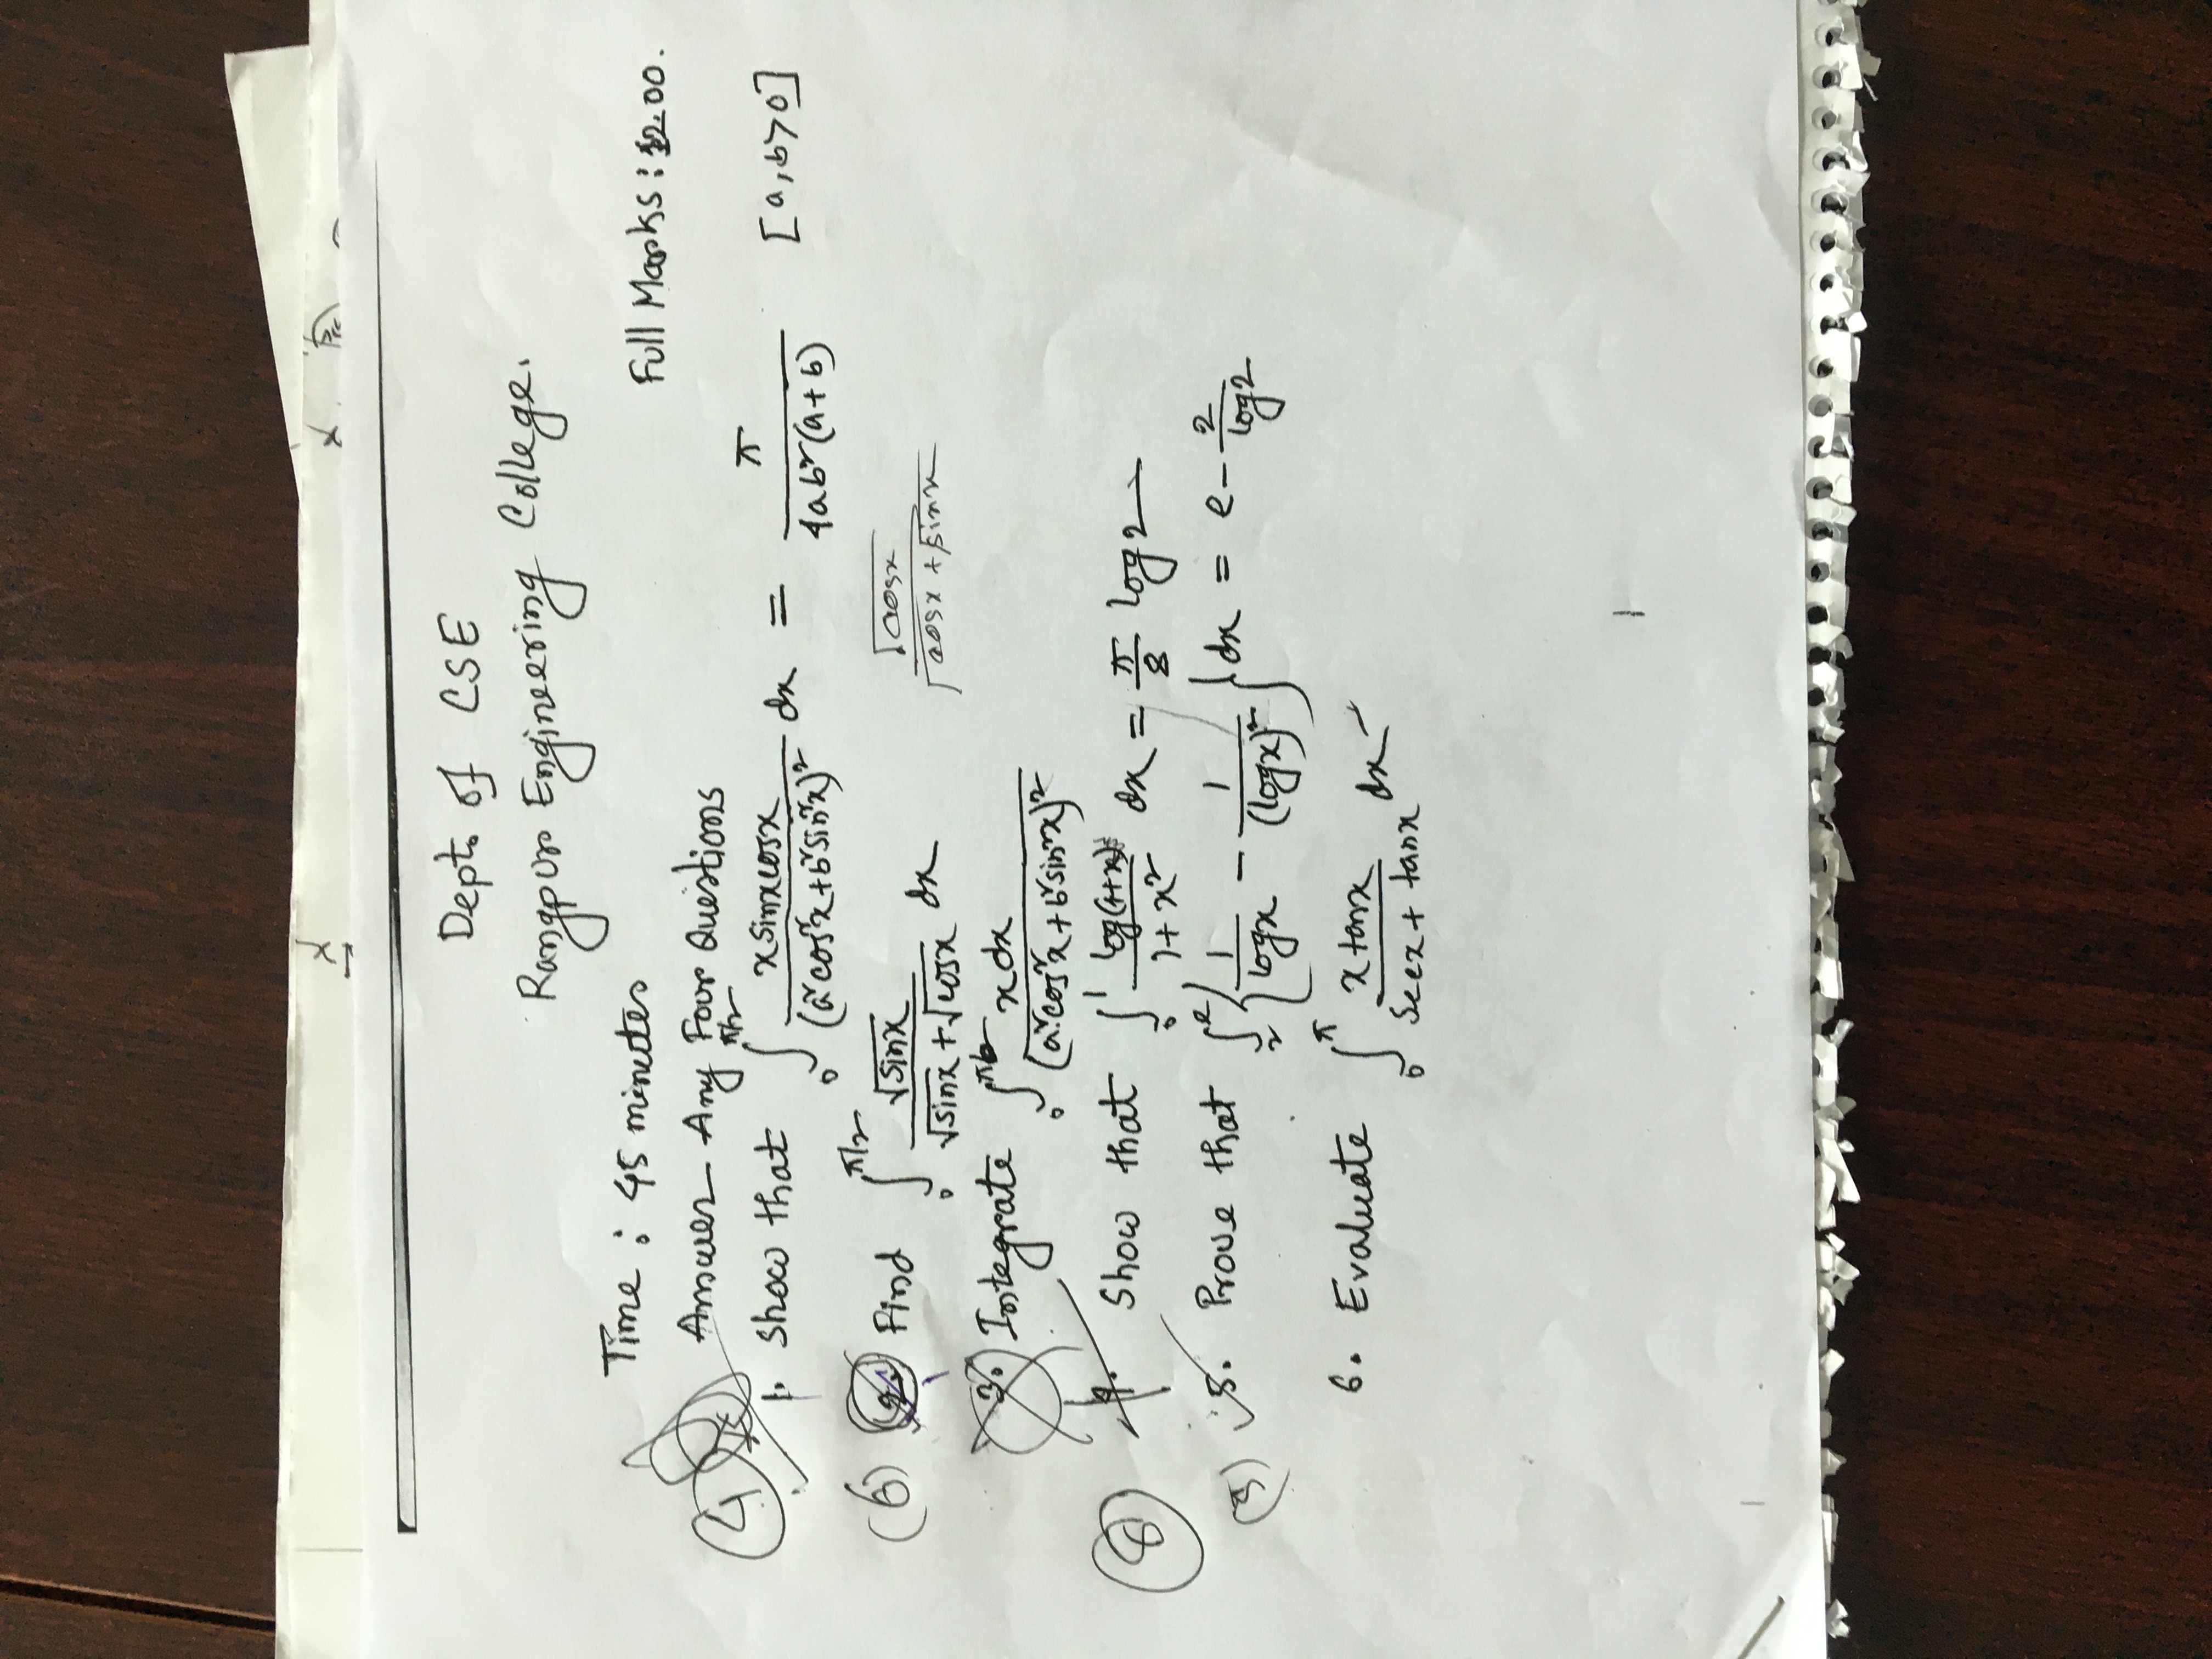 Dept. of CSE
Rangpur Engineering College.
Time : 45 minutes
Full Marks : 12.00.
Answer Any Four Questions
(4) 1. Show that ∫₀^{π/2} x sinx cosx / (a²cos²x + b²sin²x)² dx = π / 4ab²(a+b) [a, b>0]
(6) 2. Find ∫₀^{π/2} √sinx / (√sinx + √cosx) dx √cosx / (√cosx + √sinx)
3. Integrate ∫₀^{π} x dx / (a²cos²x + b²sin²x)²
(8) 4. Show that ∫₀^1 log(1+x) / (1+x²) dx = π/8 log2
(5) 5. Prove that ∫₂^e {1/logx - 1/(logx)²} dx = e - 2/log2
6. Evaluate ∫₀^π x tanx / (secx + tanx) dx